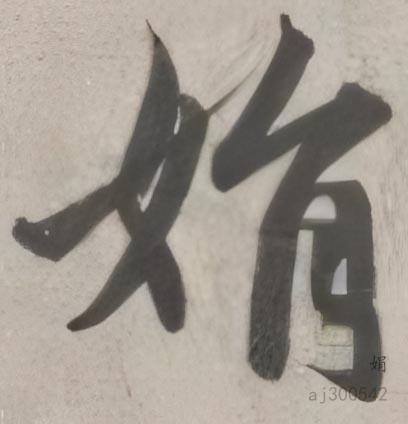 娟
娟
aj300542